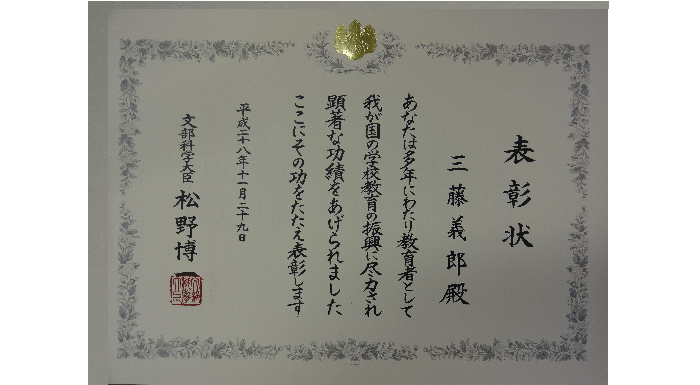 表彰状
三藤義郎殿
あなたは多年にわたり教育者として
我が国の学校教育の振興に尽力され
顕著な功績をあげられました
ここにその功をたたえ表彰します
平成二十八年十一月二十九日
文部科学大臣 松野博一